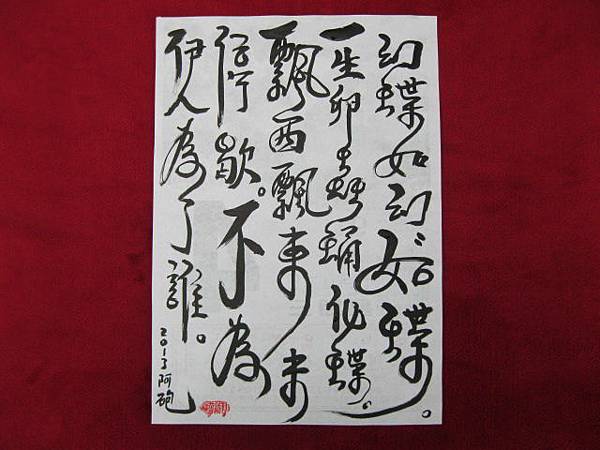 幻蝶如幻如蝶。
一生卵蛹化蝶。
飄西飄東未
停歇。不為
伊人為了誰。
2013 阿砲